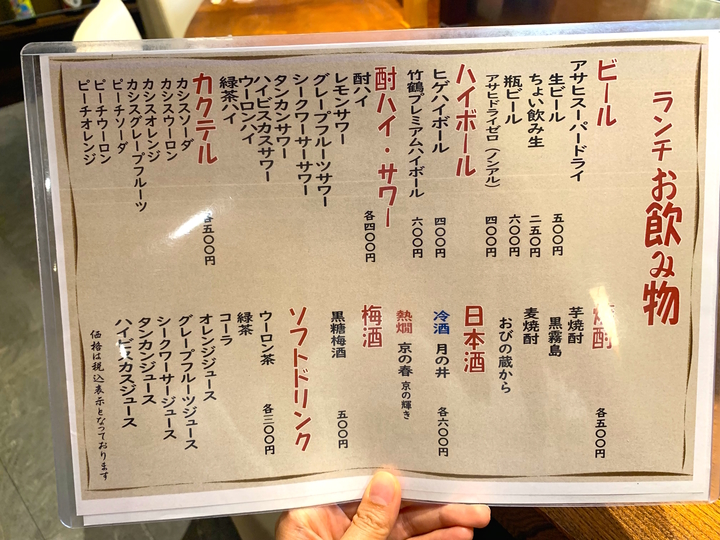 ランチお飲み物
ビール
アサヒスーパードライ
生ビール 五〇〇円
ちょい飲み生 二五〇円
瓶ビール 六〇〇円
アサヒドライゼロ(ノンアル) 四〇〇円
ハイボール
ヒゲハイボール 四〇〇円
竹鶴プレミアムハイボール 六〇〇円
酎ハイ・サワー
酎ハイ 各四〇〇円
レモンサワー
グレープフルーツサワー
シークワーサーサワー
タンカンサワー
ハイビスカスサワー
ウーロンハイ
緑茶ハイ
カクテル 各五〇〇円
カシスソーダ
カシスウーロン
カシスオレンジ
カシスグレープフルーツ
ピーチソーダ
ピーチウーロン
ピーチオレンジ
焼酎 各五〇〇円
芋焼酎
黒霧島
麦焼酎
おびの蔵から
日本酒
冷酒 月の井 各六〇〇円
熱燗 京の春 京の輝き
梅酒
黒糖梅酒 五〇〇円
ソフトドリンク
ウーロン茶 各三〇〇円
緑茶
コーラ
オレンジジュース
グレープフルーツジュース
シークワーサージュース
タンカンジュース
ハイビスカスジュース
価格は税込表示となっております